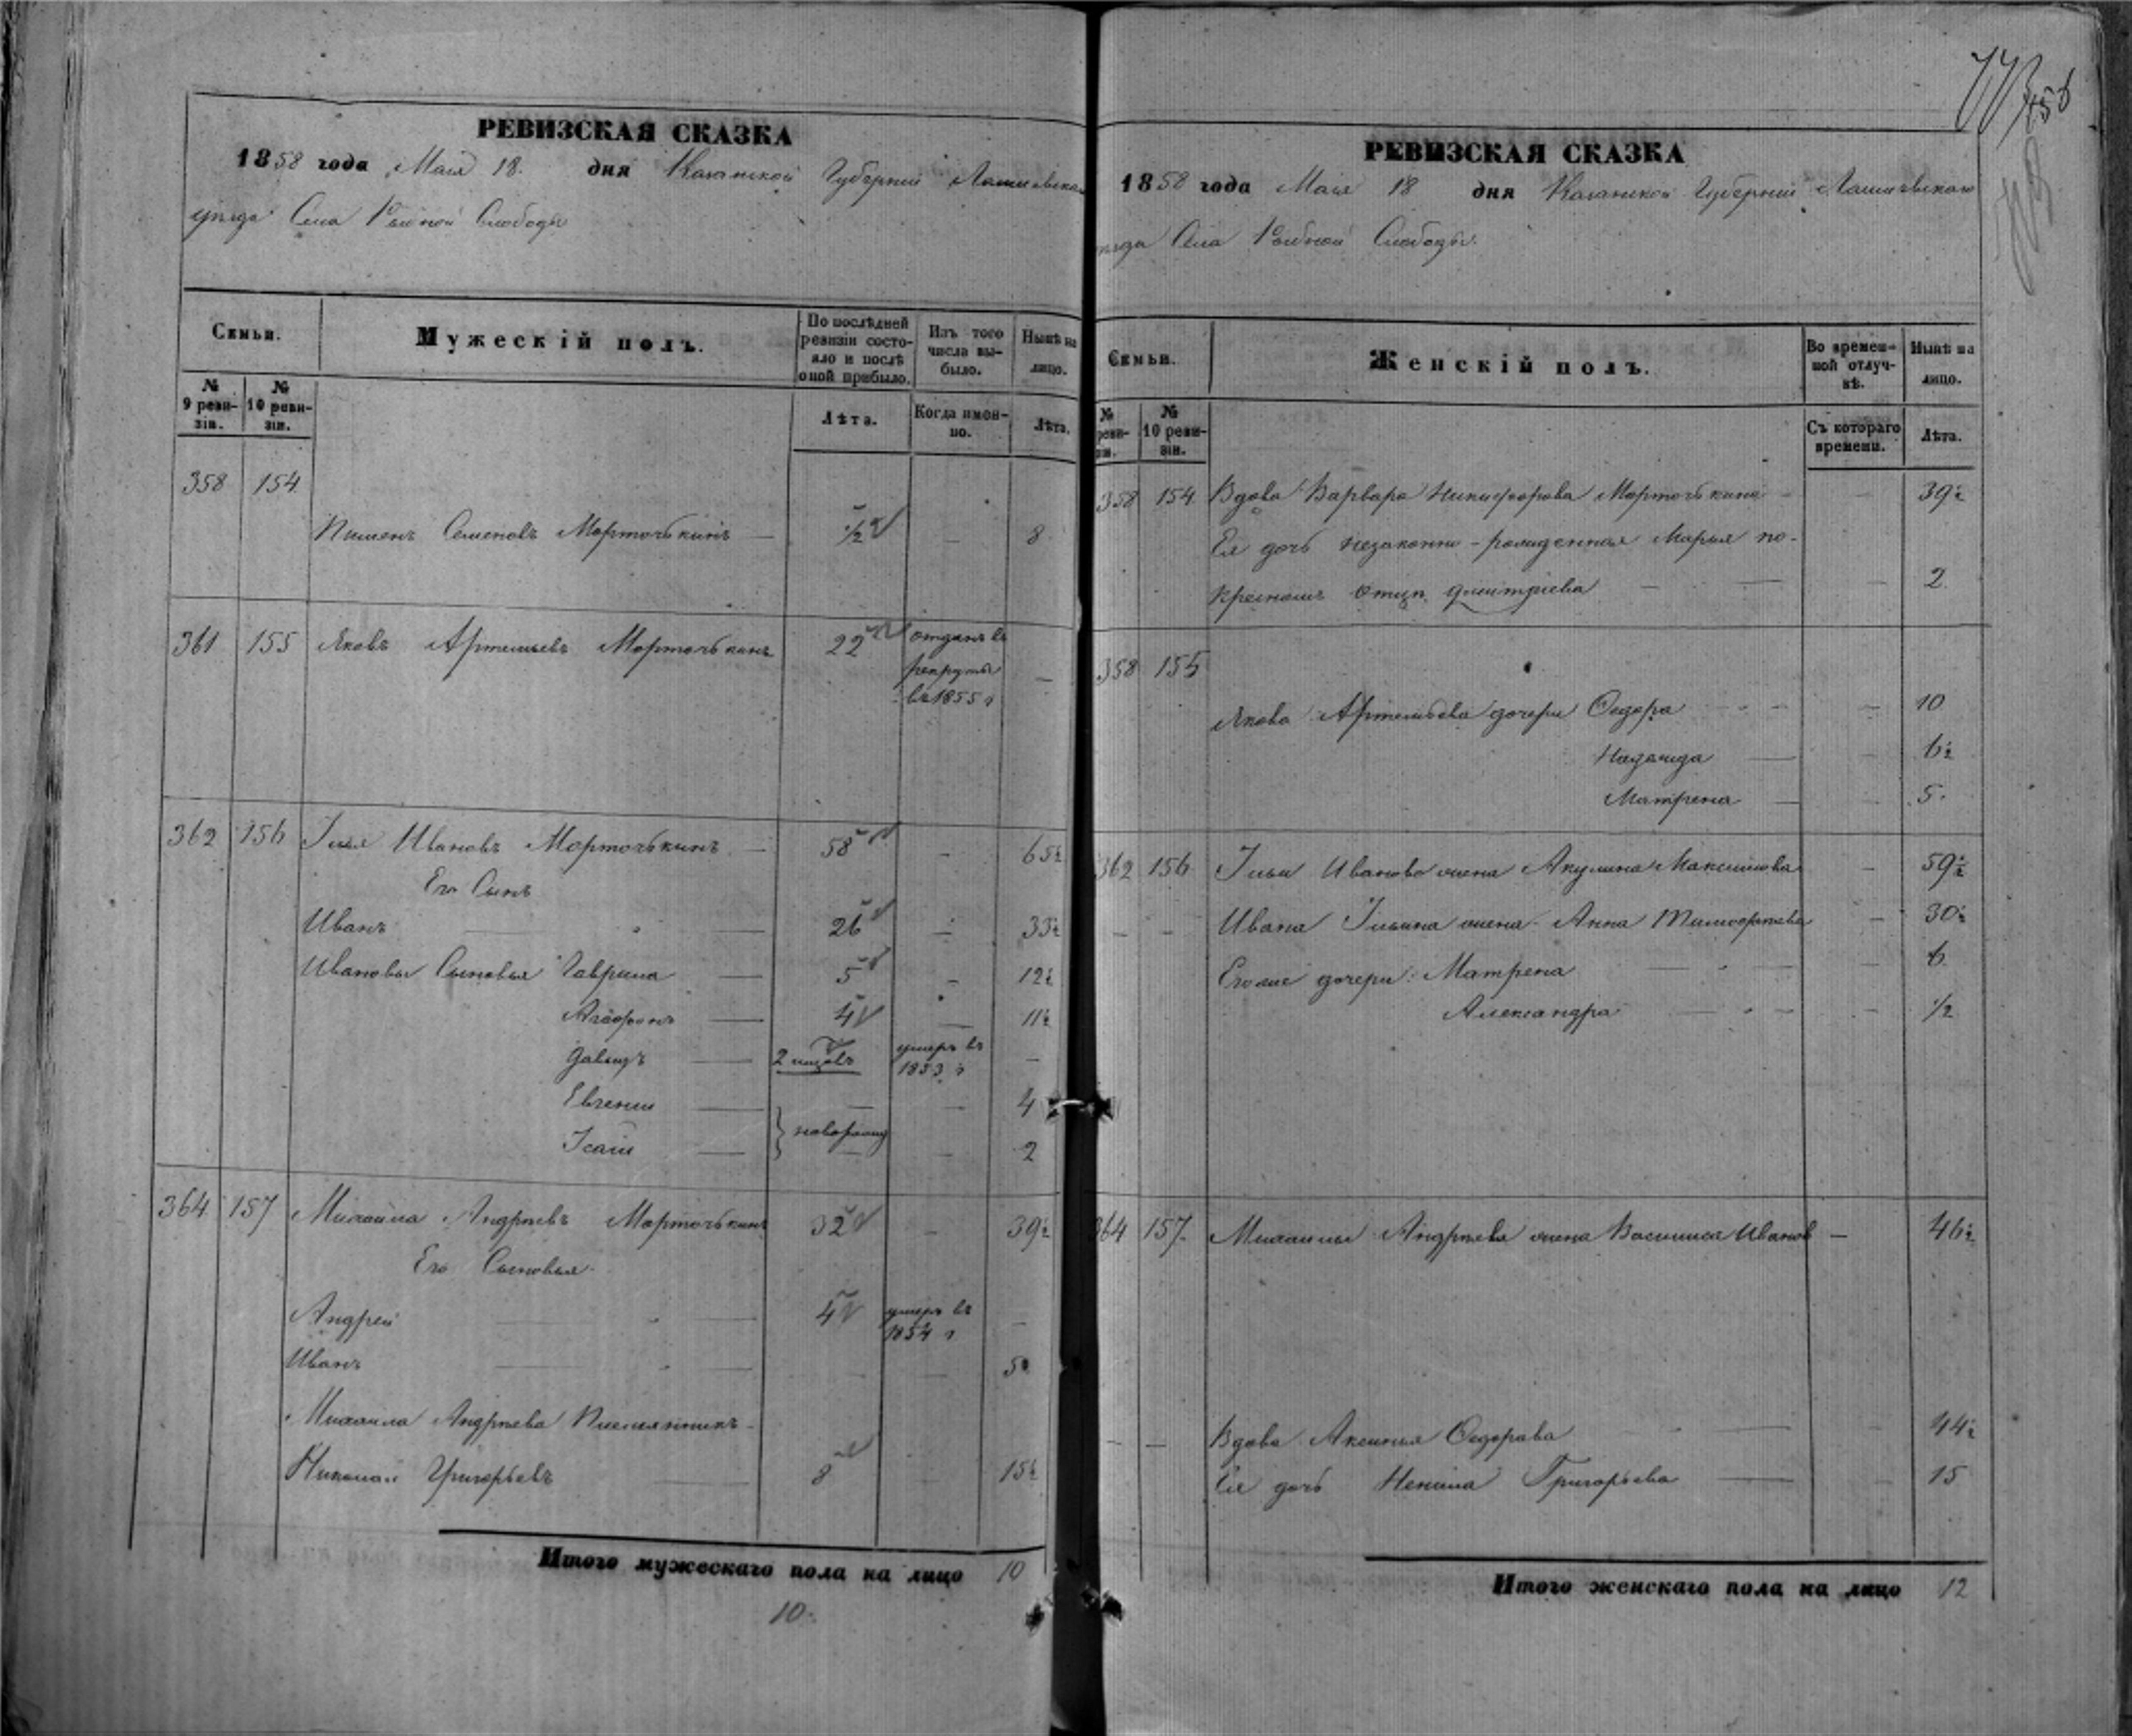 РЕВИЗСКАЯ СКАЗКА
1858 года Мая 18. дня Казанской Губерніи Лаишевскаго
уѣзда Села Рыбной Слободы
Семьи.
Мужескій полъ.
По послѣдней ревизіи состояло и послѣ оной прибыло.
Изъ того числа выбыло.
Нынѣ на лицо.
№ 9 ревизіи.
№ 10 ревизіи.
Лѣта.
Когда именно.
Лѣта.
358 154
Пименъ Семеновъ Морточькинъ — 1/2 — 8
361 155 Яковъ Артемьевъ Морточькинъ 22 отданъ въ
рекруты —
въ 1855 г
362 156 Илья Ивановъ Морточькинъ — 58 — 65½
Его Сынъ
Иванъ — 26 — 33½
Ивановы Сыновья Гаврила — 5 — 12½
Агафонъ — 4 — 11½
Давыдъ — 2 умеръ въ —
1853 г
Евгений — — — 4
новорожд
Ісаія — — — 2
364 157 Михаила Андреевъ Морточькинъ 32 — 39½
Его Сыновья
Андрей — 4 умеръ въ —
1854 г
Иванъ — — — 5
Михаила Андреева Племянникъ
Николай Григорьевъ — 8 — 15½
Итого мужескаго пола на лицо 10
10.
456
РЕВИЗСКАЯ СКАЗКА
1858 года Мая 18 дня Казанской Губерніи Лаишевскаго
уѣзда Села Рыбной Слободы.
Семьи.
Женскій полъ.
Во временной отлучкѣ.
Нынѣ на лицо.
№ реви- зіи.
№ 10 ревизіи.
Съ котораго времени.
Лѣта.
358 154 Вдова Варвара Никифорова Морточькина — — 39½
Ея дочь незаконно-рожденная Марья по-
крестномъ отцѣ Дмитріева — — — 2
358 155
Якова Артемьева дочери Федора — 10
Надежда — — 6½
Матрена — — 5.
362 156 Ильи Иванова жена Акулина Максимова — 59½
— — Ивана Ильина жена Анна Тимофеева — 30½
Его же дочери: Матрена — — 6
Александра — — 1/2
364 157. Михаилы Андреева жена Василиса Иванов — 46½
— — Вдова Аксинья Федорова — — 44½
Ея дочь Ненила Григорьева — — 15
Итого женскаго пола на лицо 12